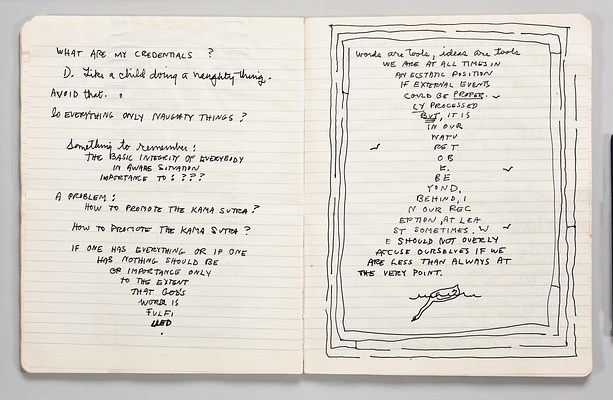 WHAT ARE MY CREDENTIALS ?
D. Like a child doing a naughty thing.
AVOID that. .
Is EVERYTHING ONLY NAUGHTY THINGS ?
Something to remember:
THE BASIC INTEGRITY OF EVERYBODY
IN AWARE SITUATION
IMPORTANCE TO : ? ? ?
A PROBLEM:
HOW TO PROMOTE THE KAMA SUTRA ?
HOW TO PROMOTE THE KAMA SUTRA ?
IF ONE HAS EVERYTHING OR IF ONE
HAS NOTHING SHOULD BE
OF IMPORTANCE ONLY
TO THE EXTENT
THAT GOD'S
WORD IS
FULFI
LLED
.
words are tools, ideas are tools
WE ARE AT ALL TIMES IN
AN ECSTATIC POSITION
IF EXTERNAL EVENTS
COULD BE PROPER
LY PROCESSED
BUT, IT IS
IN OUR
NATU
RE T
O B
E.
BE
YOND,
BEHIND, I
N OUR REC
EPTION, AT LEA
ST SOMETIMES. W
E SHOULD NOT OVERLY
ACCUSE OURSELVES IF WE
ARE LESS THAN ALWAYS AT
THE VERY POINT.